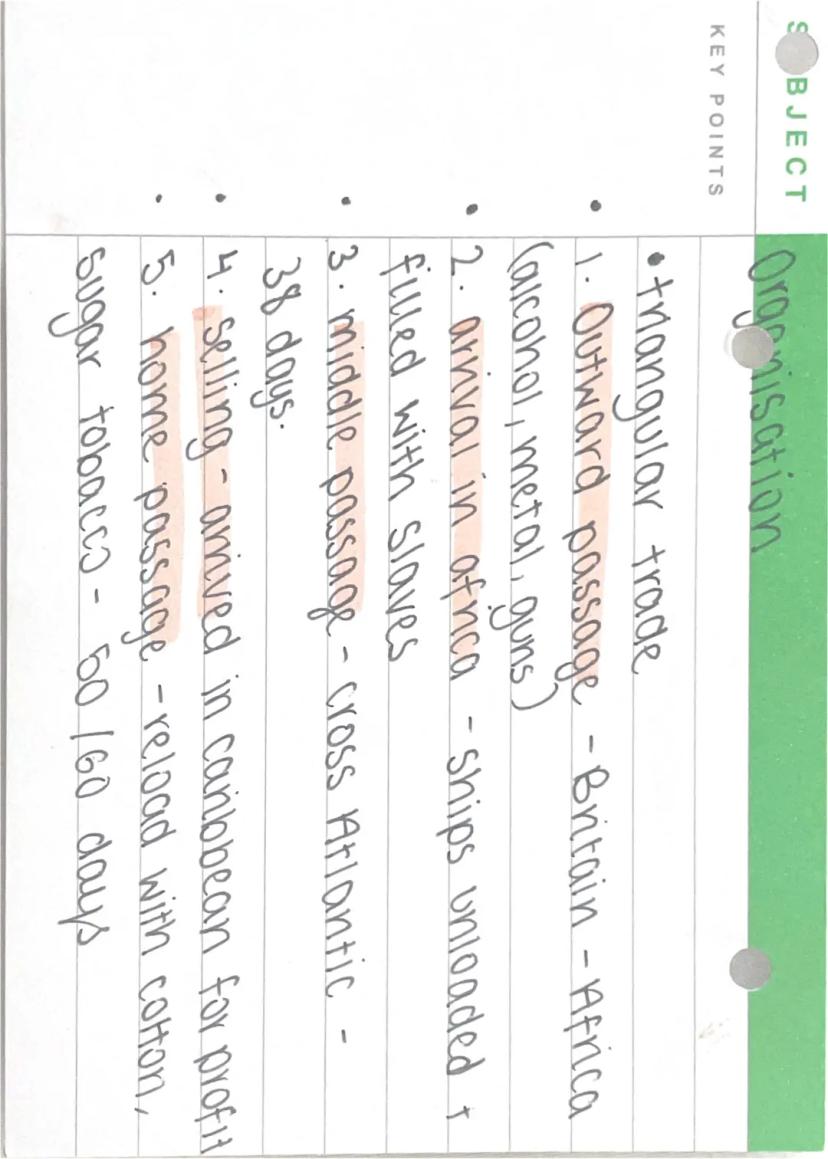 SUBJECT
Organisation
KEY POINTS
• triangular trade
• 1. Outward passage - Britain - Africa
(alcohol, metal, guns)
• 2. arrival in africa - ships unloaded +
filled with slaves
• 3. middle passage - cross Atlantic -
38 days.
• 4. selling - arrived in caribbean for profit
• 5. home passage - reload with cotton,
sugar tobacco - 50/60 days